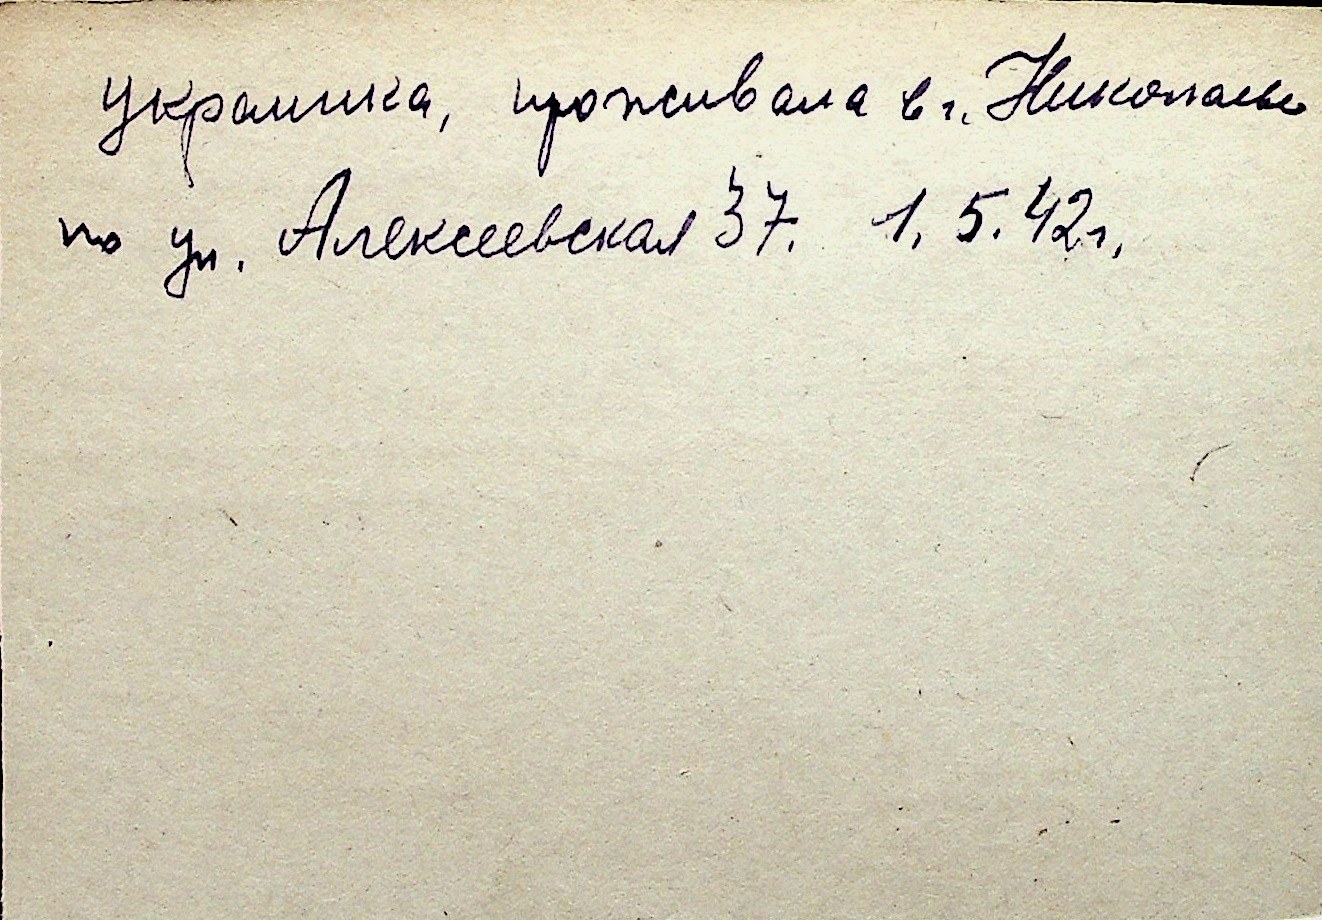 украинка, проживала в г. Николаеве
по ул. Алексеевская 37. 1.5.42г.